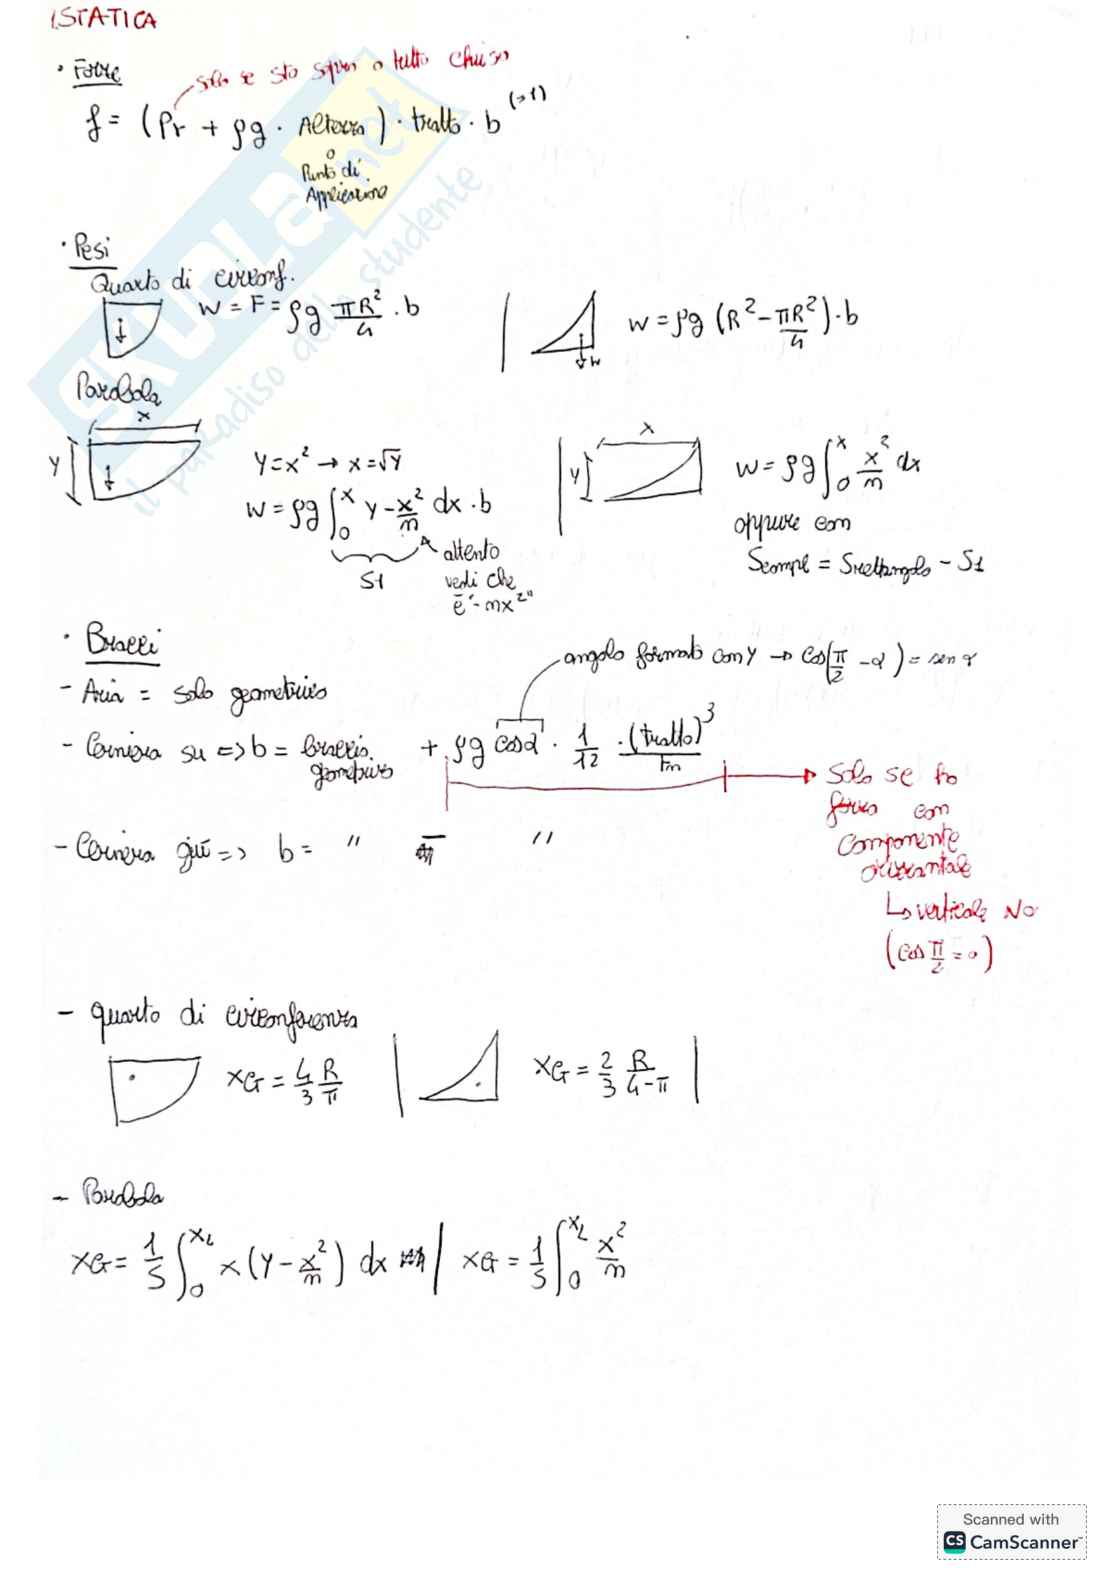 1. STATICA
· Forze
solo se sto sopra o tutto chiuso
f = (Pr + ρg · Altezza) · tratto · b (=1)
o
Punto di
Applicazione
· Pesi
Quarto di circonf.
W = F = ρg πR²/4 · b
W = ρg (R² - πR²/4) · b
W
Parabola
x
Y
Y = x² → x = √Y
W = ρg ∫₀ˣ Y - x²/m dx · b
S1
attento
vedi che
è "mx²"
x
Y
W = ρg ∫₀ˣ x²/m dx
oppure con
Scompl = Srettangolo - S1
· Bracci
angolo formato con Y → cos(π/2 - α) = sen α
- Aria = solo geometrico
- Cerniera su => b = braccio geometrico + ρg cosα · 1/12 · (tratto)³/Fm
Solo se ho
forza con
componente
orizzontale
↳ verticale NO
(cos π/2 = 0)
- Cerniera giù => b = " - "
- quarto di circonferenza
xG = 4/3 R/π
xG = 2/3 R/(4-π)
- Parabola
xG = 1/S ∫₀ˣᴸ x (Y - x²/m) dx
xG = 1/S ∫₀ˣᴸ x²/m
SKUOLA.net
il paradiso dello studente
Scanned with
CS CamScanner™